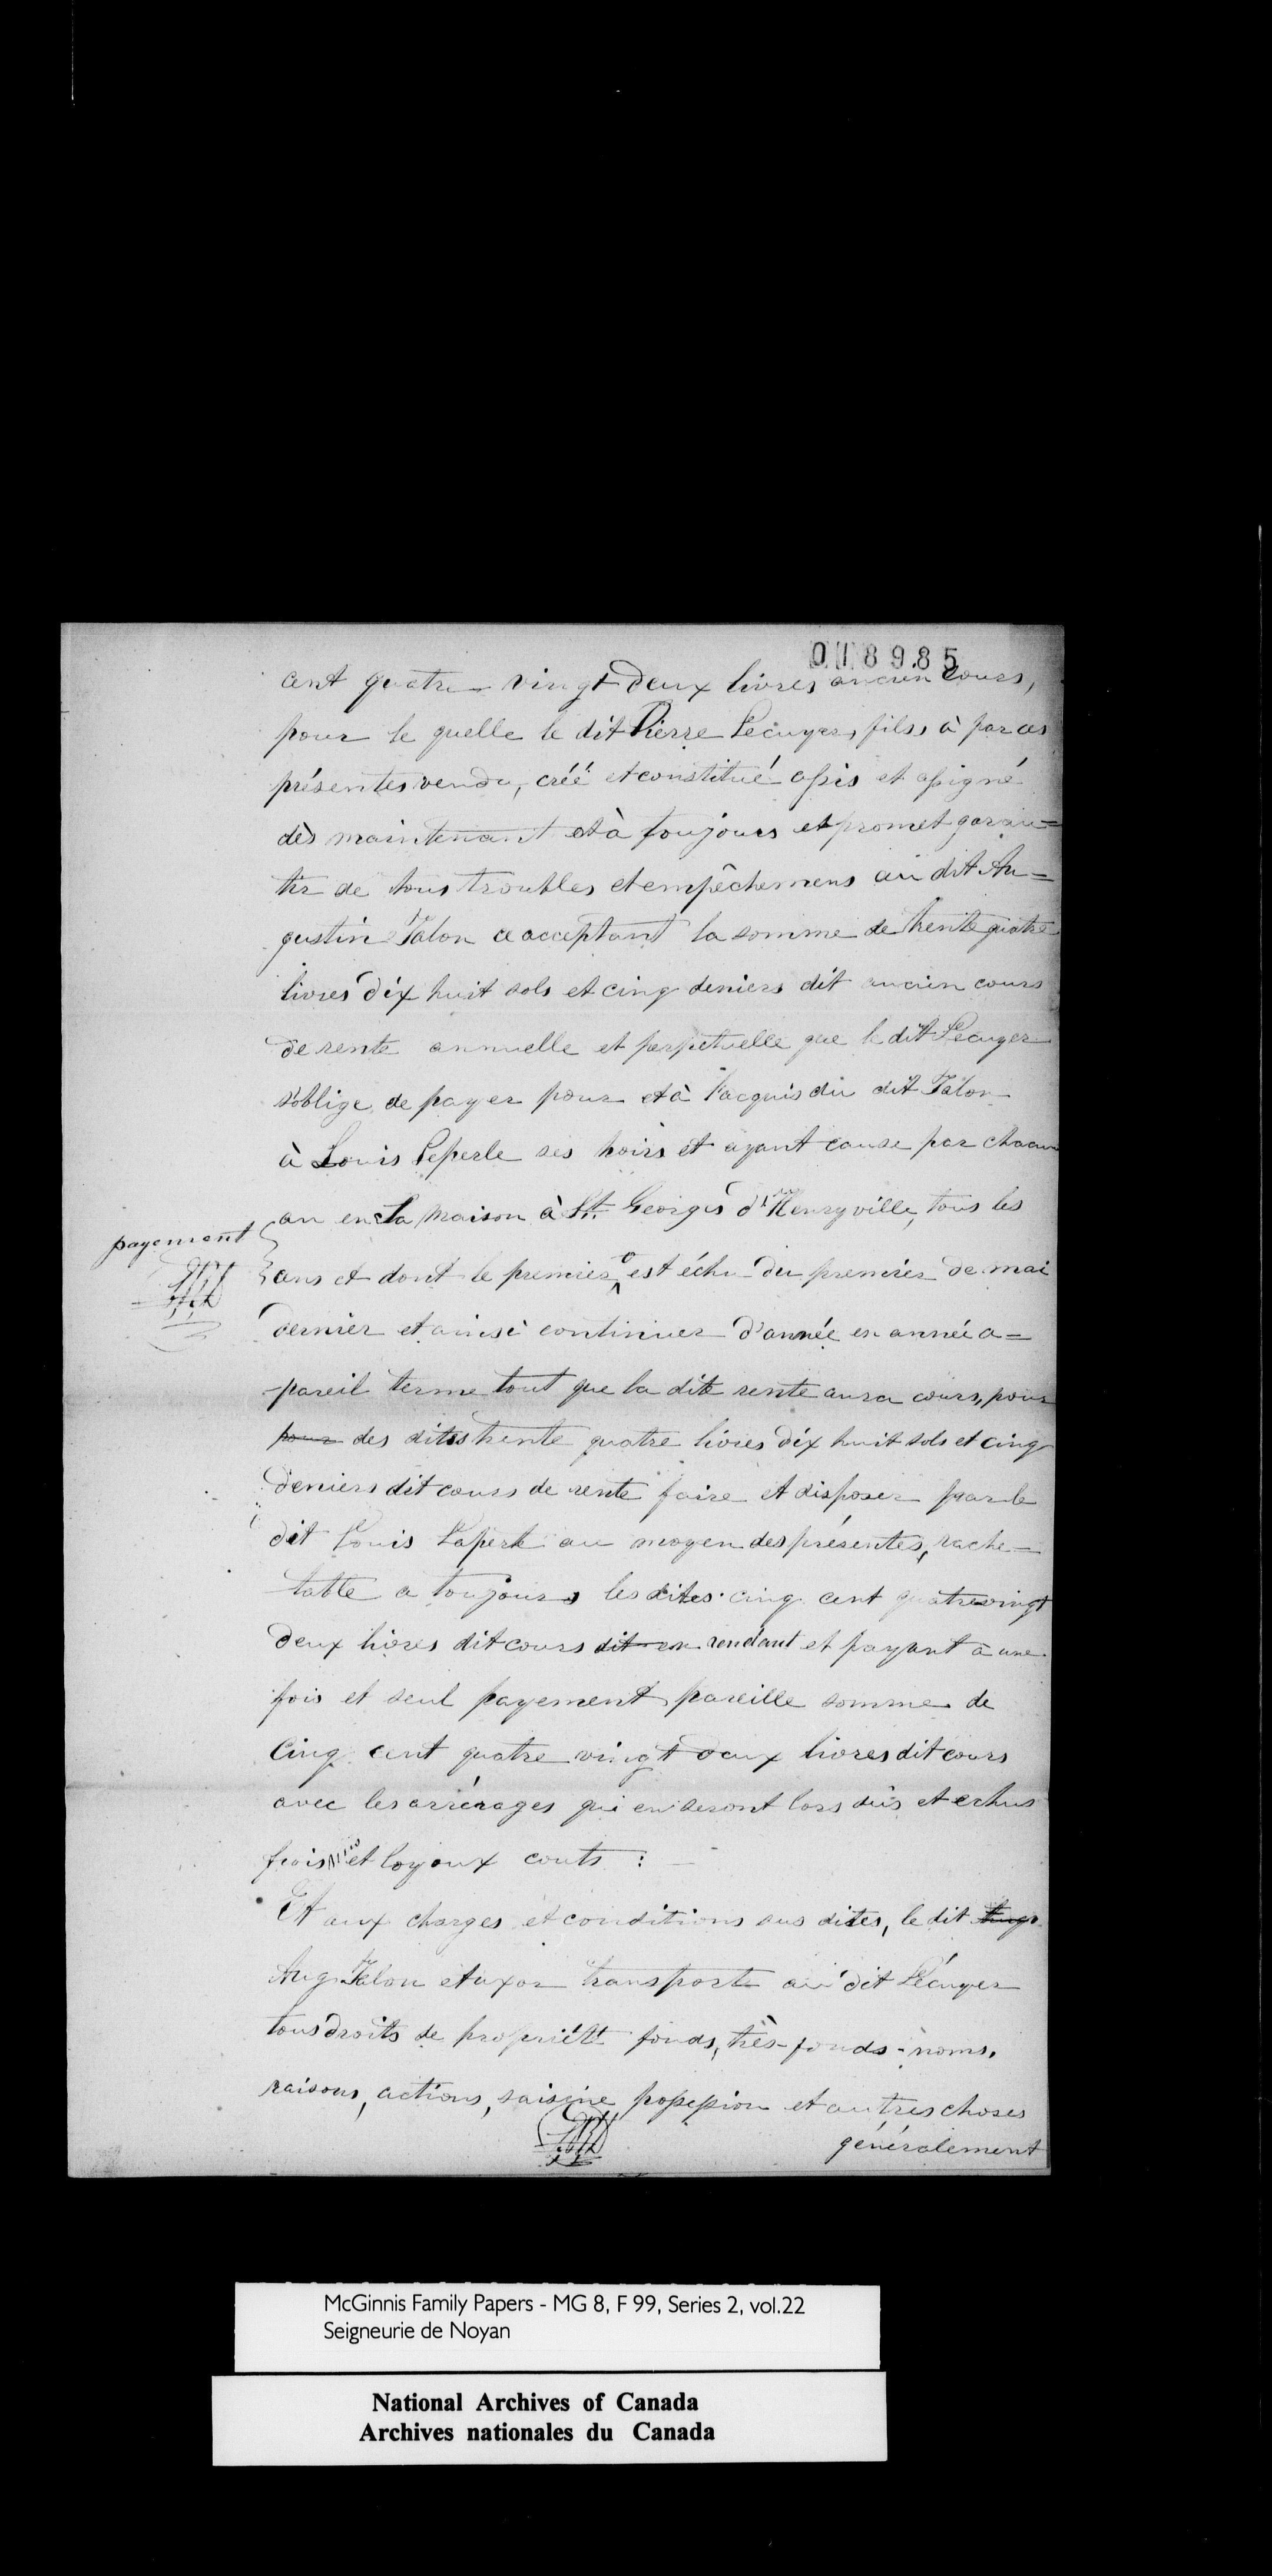 018985
cent quatre-vingt deux livres ancien cours,
pour le quelle le dit Pierre Lécuyer, fils, à par ces
présentes vendu, créé et constitué assis et assigné
dès maintenant et à toujours et promet garan=
tir de tous troubles et empêchemens au dit Au=
gustin Talon ce acceptant la somme de trente quatre
livres dix huit sols et cinq deniers dit ancien cours
de rente annuelle et perpetuelle que le dit Lecuyer
s'oblige de payer pour et à l'acquis du dit Talon
à Louis Leperle ses hoirs et ayant cause par chacun
an en sa maison à St. Georges d'Henryville, tous les
payement
ans et dont le premier est échu du premier de mai
dernier et ainsi continuer d'année en année a=
pareil terme tout que la dite rente aura cours, pour
pour des dites trente quatre livres dix huit sols et cinq
deniers dit cours de rente faire et disposer par le
dit Louis Laperle au moyen des présentes, rache=
table a toujours les dites cinq cent quatre vingt
deux livres dit cours dit en rendant et payant à une
fois et seul payement pareille somme de
Cinq cent quatre vingt deux livres dit cours
avec les arrérages qui en seront lors dûs et echus
frais et loyoux couts :
Et aux charges et conditions sus dites, le dit
Aug. Talon et uxor transporte au dit Lécuyer
tous droits de propriété fonds, très-fonds-noms,
raisons, actions, saisine possession et autres choses
généralement
McGinnis Family Papers - MG 8, F 99, Series 2, vol.22
Seigneurie de Noyan
National Archives of Canada
Archives nationales du Canada